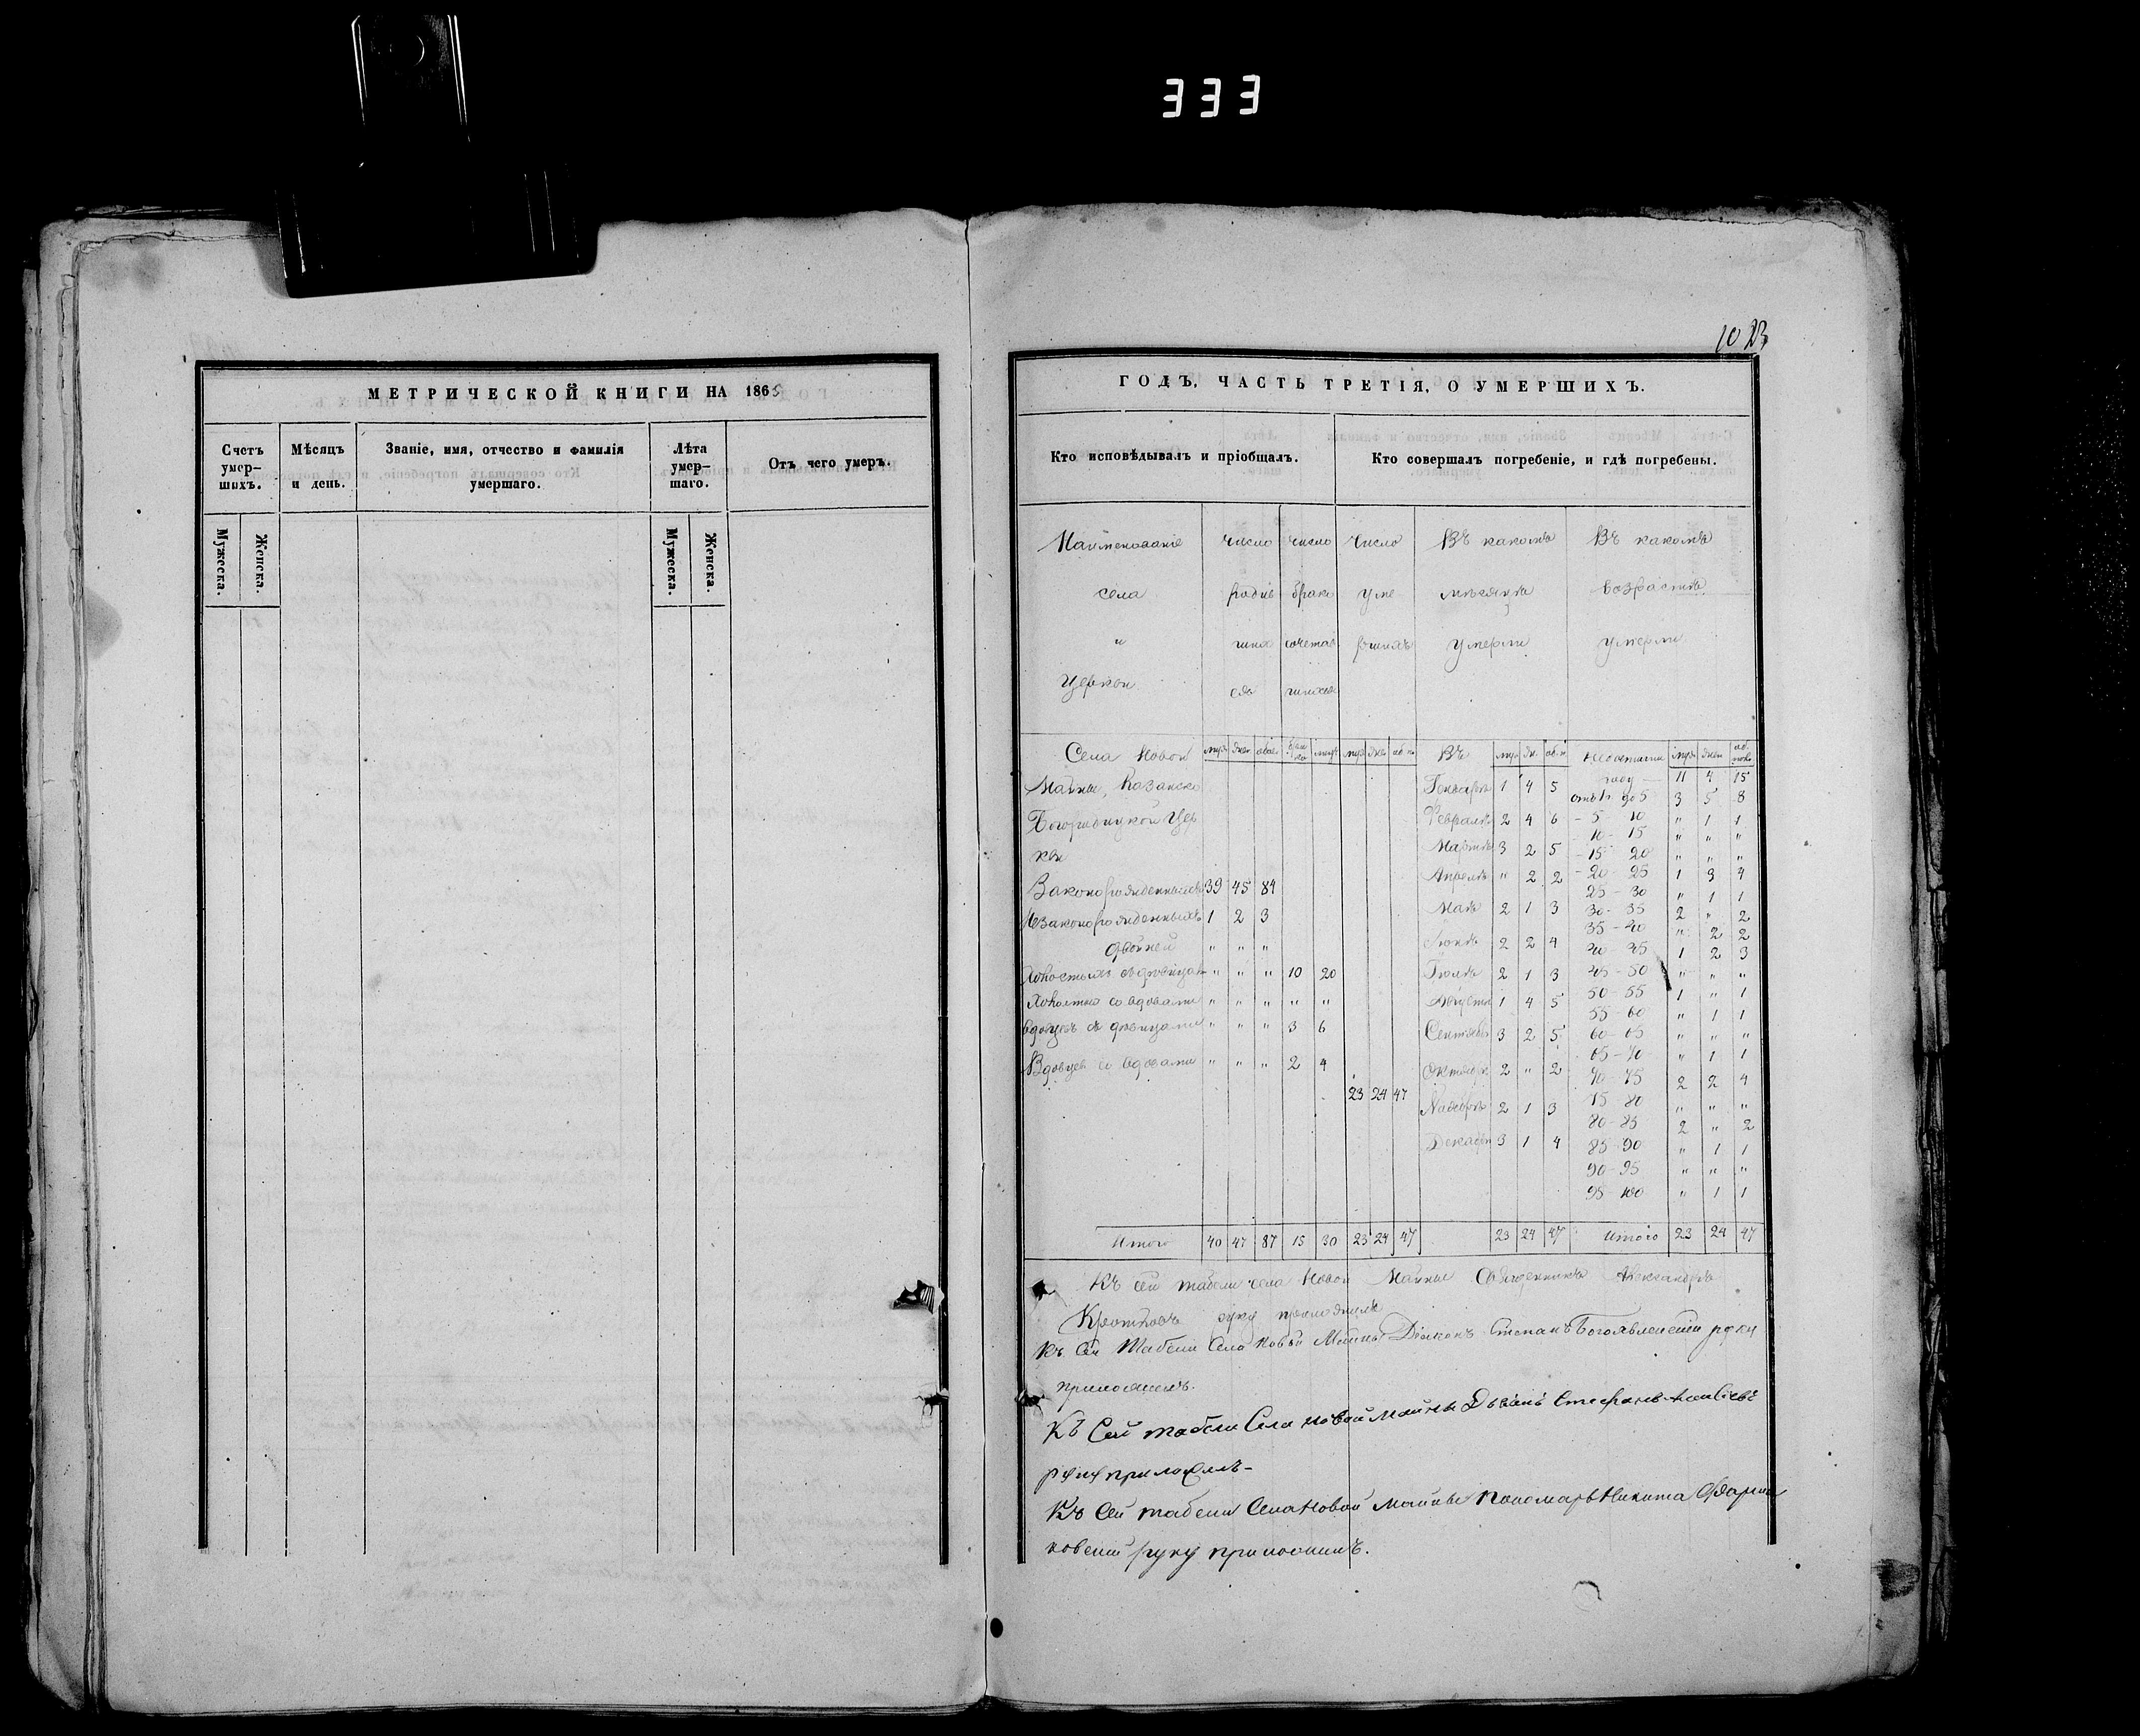 333
1023
МЕТРИЧЕСКОЙ КНИГИ НА 1865
Счетъ умер-шихъ.
Мѣсяцъ и день.
Званіе, имя, отчество и фамилія умершаго.
Лѣта умер-шаго.
Отъ чего умеръ.
Мужеска. Женска. Мужеска. Женска.
ГОДЪ, ЧАСТЬ ТРЕТІЯ, О УМЕРШИХЪ.
Кто исповѣдывалъ и пріобщалъ.
Кто совершалъ погребеніе, и гдѣ погребены.
Наименованіе число число число Въ какомъ Въ какомъ
села родив браком уме мѣсяцѣ возрастѣ
и шихъ сочетав ршихъ умерли умерли
Церкви ся шихся
Села Новой муж жен обое муж жен об п Въ муж ж. об п Недостигши муж жен об. пола
году — 11 4 15
Майны, Казанско Генварѣ 1 4 5 отъ 1 до 5 3 5 8
Богородицкой Цер Февралѣ 2 4 6 - 5 10 " 1 1
- 10 - 15 " " "
кви Мартѣ 3 2 5 - 15 20 " " "
Апрелѣ " 2 2 - 20 - 25 1 3 4
Законорожденныхъ 39 45 84 25 - 30 " 1 1
Маѣ 2 1 3 30 - 35 2 " 2
Незаконорожденныхъ 1 2 3 35 - 40 " 2 2
двойней " " " Іюнѣ 2 2 4 40 - 45 1 2 3
Холостыхъ съ дѣвицам " " " 10 20 Іюлѣ 2 1 3 45 - 50 " " "
Холостых со вдовами " " " " " Августѣ 1 4 5 50 - 55 1 " 1
55 - 60 " 1 1
вдовцевъ съ дѣвицами " " " 3 6 Сентябрѣ 3 2 5 60 - 65 " " "
65 - 70 " 1 1
Вдовцев со вдовами " " " 2 4 Октябрѣ 2 " 2 70 - 75 2 2 4
23 24 47 75 80 " " "
Ноябрѣ 2 1 3 80 - 85 2 " 2
Декабрѣ 3 1 4 85 - 90 " 1 1
90 - 95 " " "
95 - 100 " 1 1
Итого 40 47 87 15 30 23 24 47 23 24 47 Итого 23 24 47
Къ сей табели села Новой Майны Священникъ Александръ
руку приложилъ
Къ сей Табели Села Новой Майны Діаконъ Степанъ Богоявленскій руку
приложилъ.
Къ Сей табели Села Новой Майны Дьячокъ Стефанъ
руку приложилъ-
Къ Сей табели Села Новой Майны Пономарь Никита
ковскій руку приложилъ.